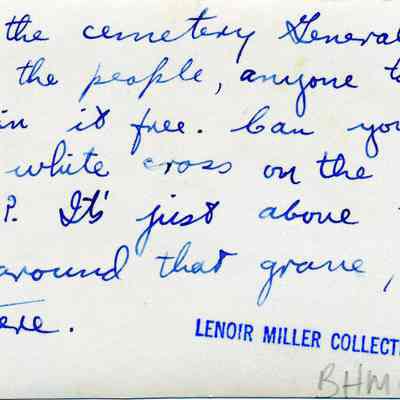 the cemetery General
the people, anyone t
in it free. Can you
white cross on the
P. It's just above
around that grave,
ere.
LENOIR MILLER COLLECT
BHM